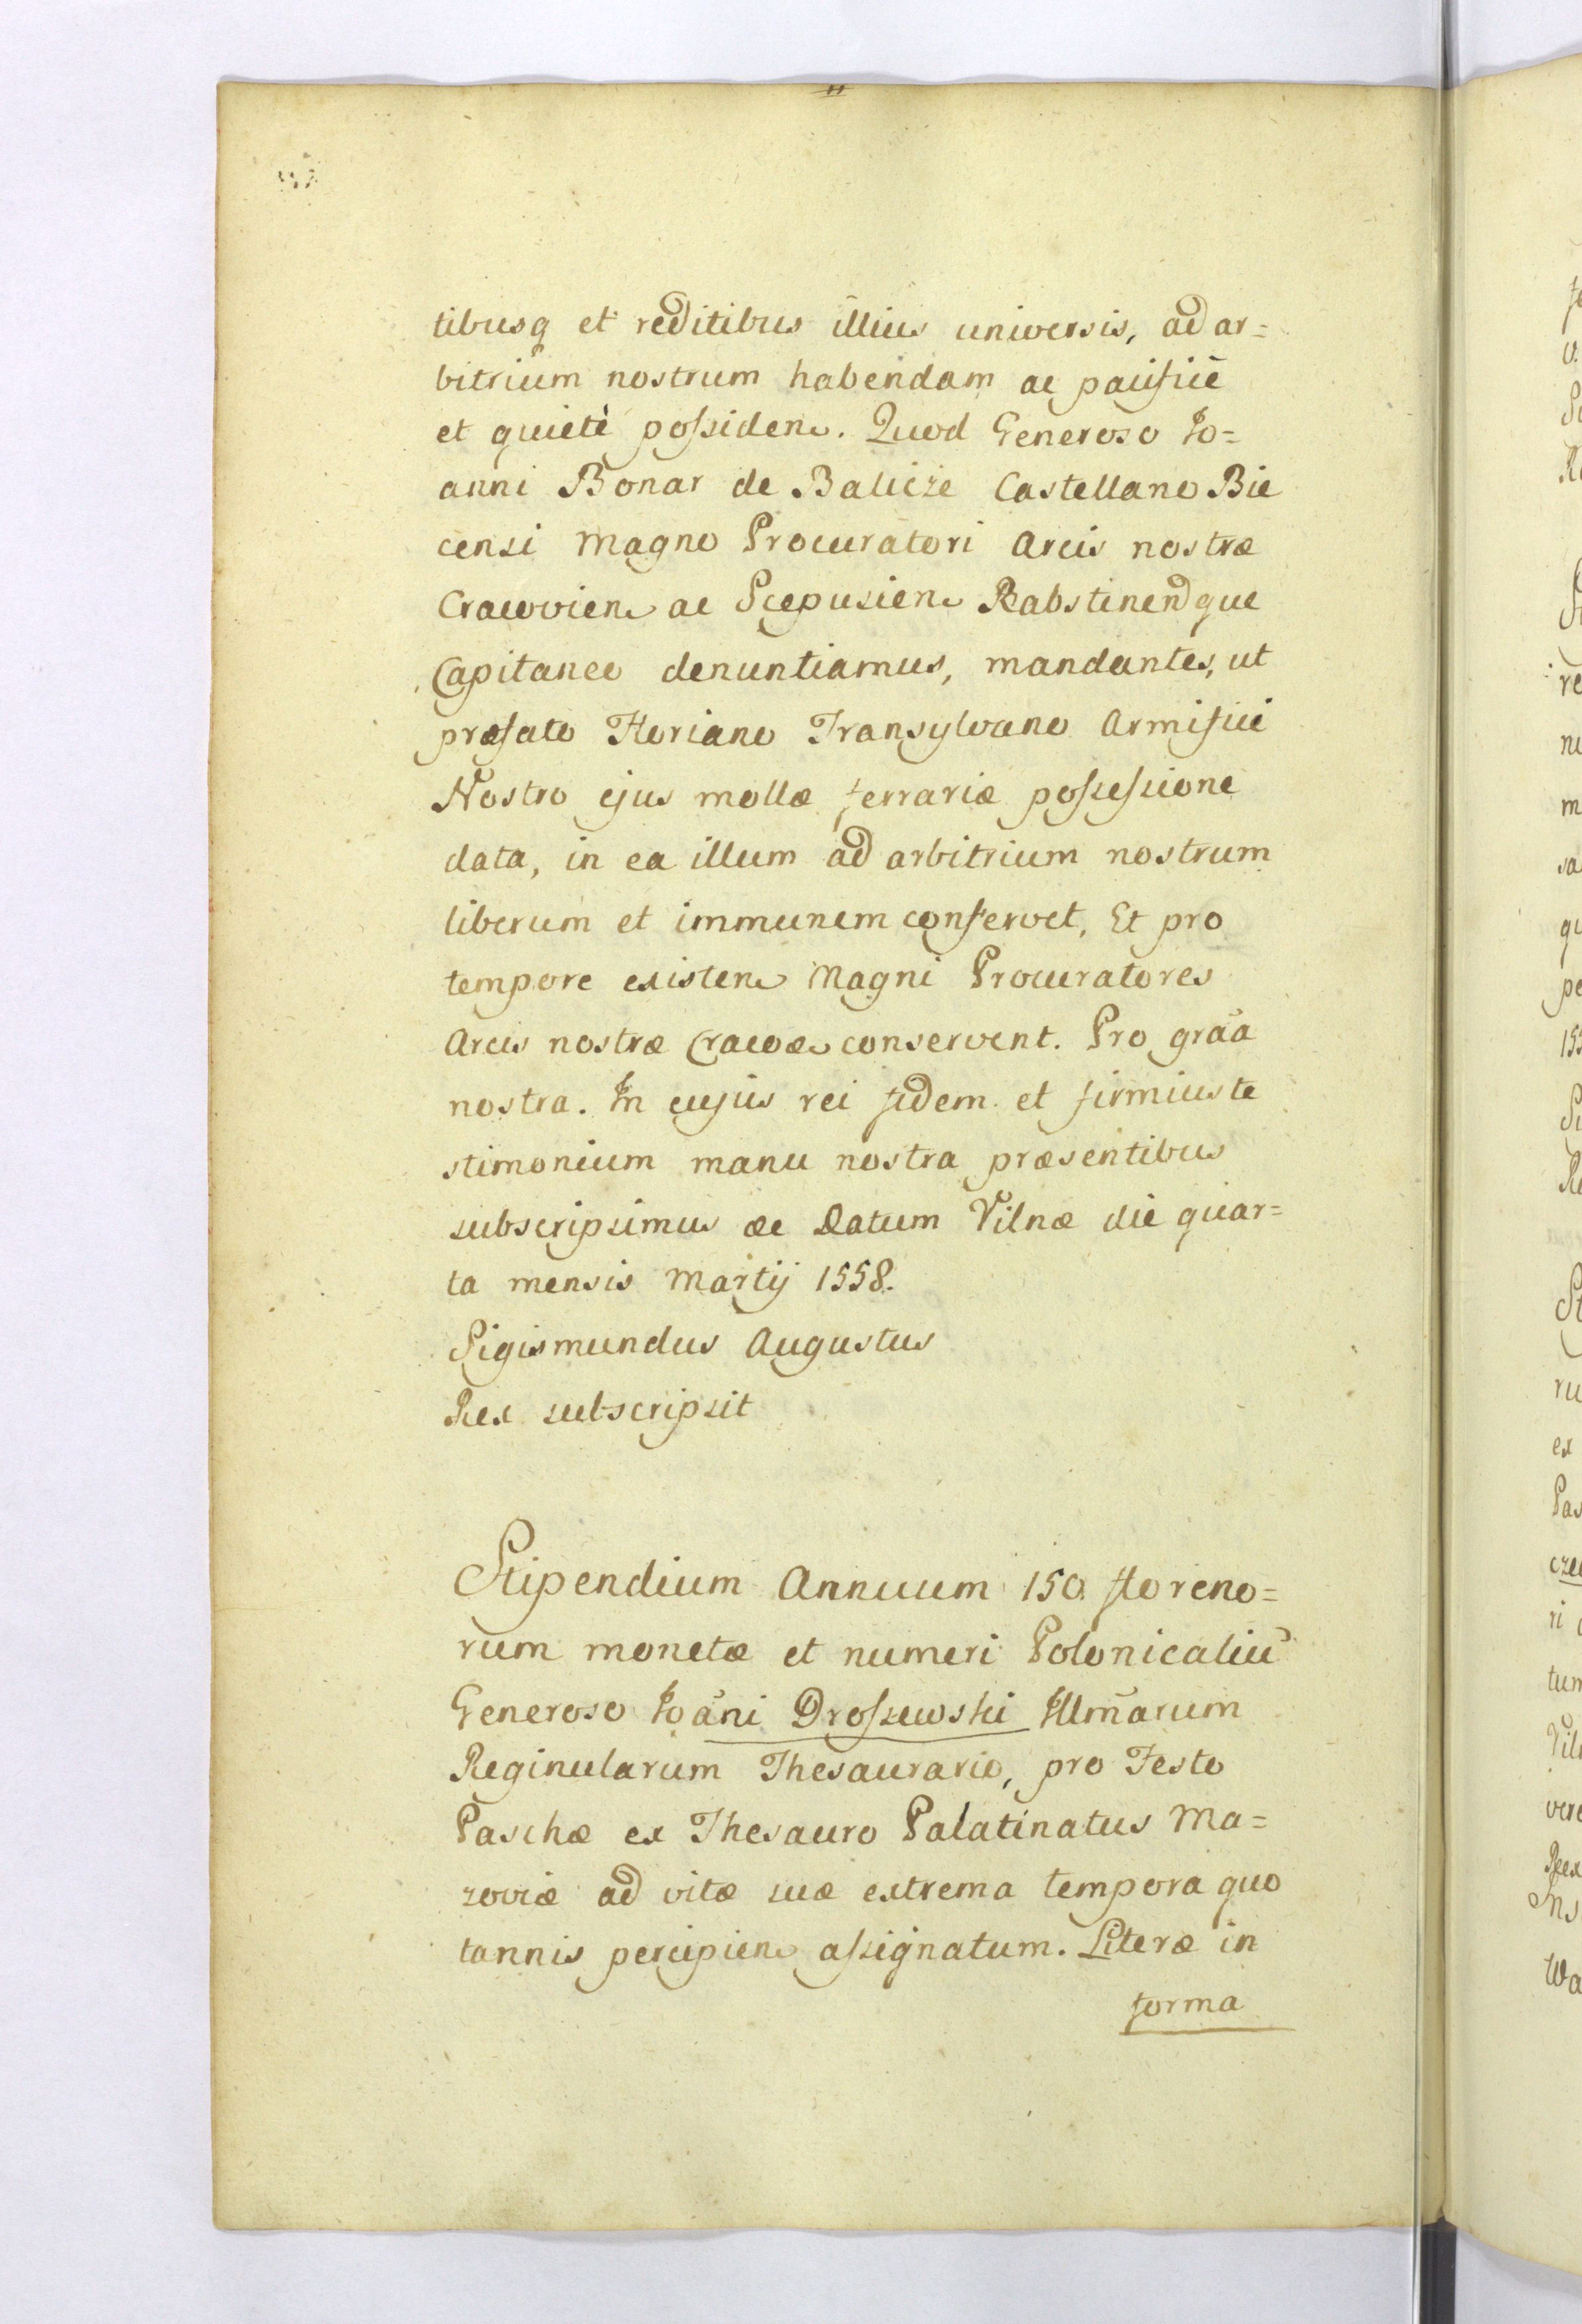 tibusq et reditibus illius universis, ad ar=
bitrium nostrum habendam ac pacificè
et quietè possiden. Quod Generoso Jo=
anni Bonar de Balicze Castellano Bie
censi Magno Procuratori Arcis nostræ
Cracovien ac Scepusien Rabstinendque
Capitaneo denuntiamus, mandantes, ut
præfato Floriano Transylvano Armifici
Nostro ejus mollæ ferrariæ possessione
data, in ea illum ad arbitrium nostrum
liberum et immunem conservet, Et pro
tempore existen Magni Procuratores
Arcis nostræ Cracoæ conservent. Pro grãa
nostra. In cujus rei fidem et firmius te
stimonium manu nostra præsentibus
subscripsimus &c Datum Vilnæ die quar=
ta mensis Martij 1558.
Sigismundus Augustus
Rex subscripsit
Stipendium Annuum 150 floreno=
rum monetæ et numeri Polonicaliũ
Generoso Joãni Drossewski Illmãrum
Reginularum Thesaurario, pro Festo
Paschæ ex Thesauro Palatinatus Ma=
zoviæ ad vitæ suæ extrema tempora quo
tannis percipien assignatum. Literæ in
forma